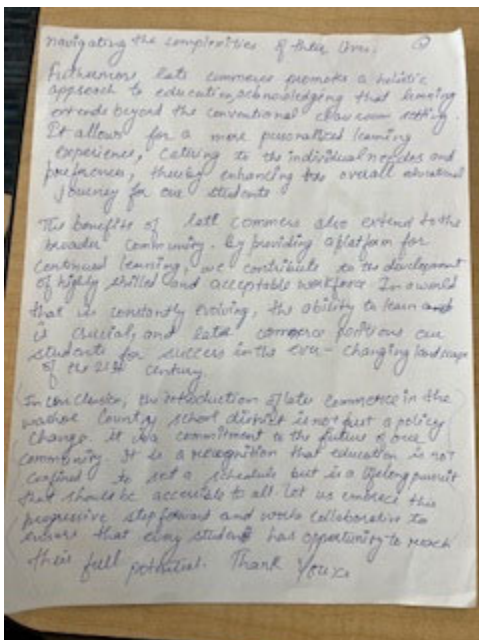 navigating the complexities of their lives.
Futhermore late commerce promote a holistic
approach to education, acknowledging that learning
extends beyond the conventional classroom setting.
It allows for a more personalized learning
experience, catering to the individual needes and
preferences, thereby enhancing the overall educational
journey for our students
The benefits of late commers also extend to the
broader community. By providing a platform for
continued learning, we contribute to the development
of highly skilled and acceptable workforce In a world
that is constantly evolving, the ability to learn
is crucial, and late commerce positions our
students for success in the ever-changing landscape
of the 21st century.
In conclusion, the introduction of late commerce in the
washoe Country school district is not just a policy
change. it is a commitment to the future of our
community. It is a recognition that education is not
confined to set a schedule but is a lifelong pursuit
that should be accessible to all. let us embrace this
progressive step forward and work collaborative to
ensure that every student has opportunity to reach
their full potential. Thank You